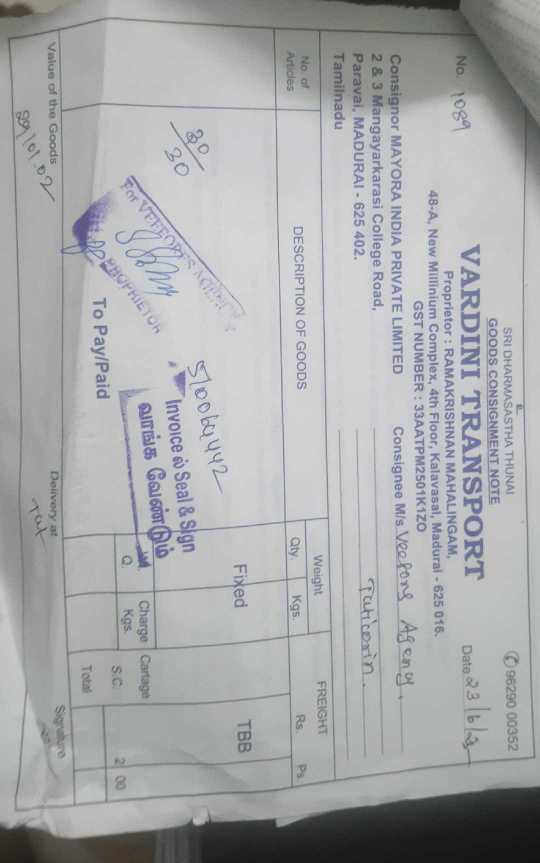 SRI DHARMASASTHA THUNAI
GOODS CONSIGNMENT NOTE
✆ 96290 00352
VARDINI TRANSPORT
Proprietor : RAMAKRISHNAN MAHALINGAM,
48-A, New Millinium Complex, 4th Floor, Kalavasal, Madurai - 625 016.
GST NUMBER : 33AATPM2501K1ZO
No. 1089
Date 23/6/
Consignor MAYORA INDIA PRIVATE LIMITED
2 & 3 Mangayarkarasi College Road,
Paravai, MADURAI - 625 402.
Tamilnadu
Consignee M/s. Veepons Ageny,
Tuticorin.
No. of Articles
DESCRIPTION OF GOODS
Weight
Qty. Kgs.
FREIGHT
Rs. Ps.
30
30
510064442
Fixed
TBB
For VEEPONS AGENCY
PROPRIETOR
Invoice ல் Seal & Sign
வாங்க வேண்டும்
To Pay/Paid
Q.
Charge Kgs.
Cartage
S.C. 2 00
Total
Value of the Goods
89101.02
Delivery at
Tut
Signature